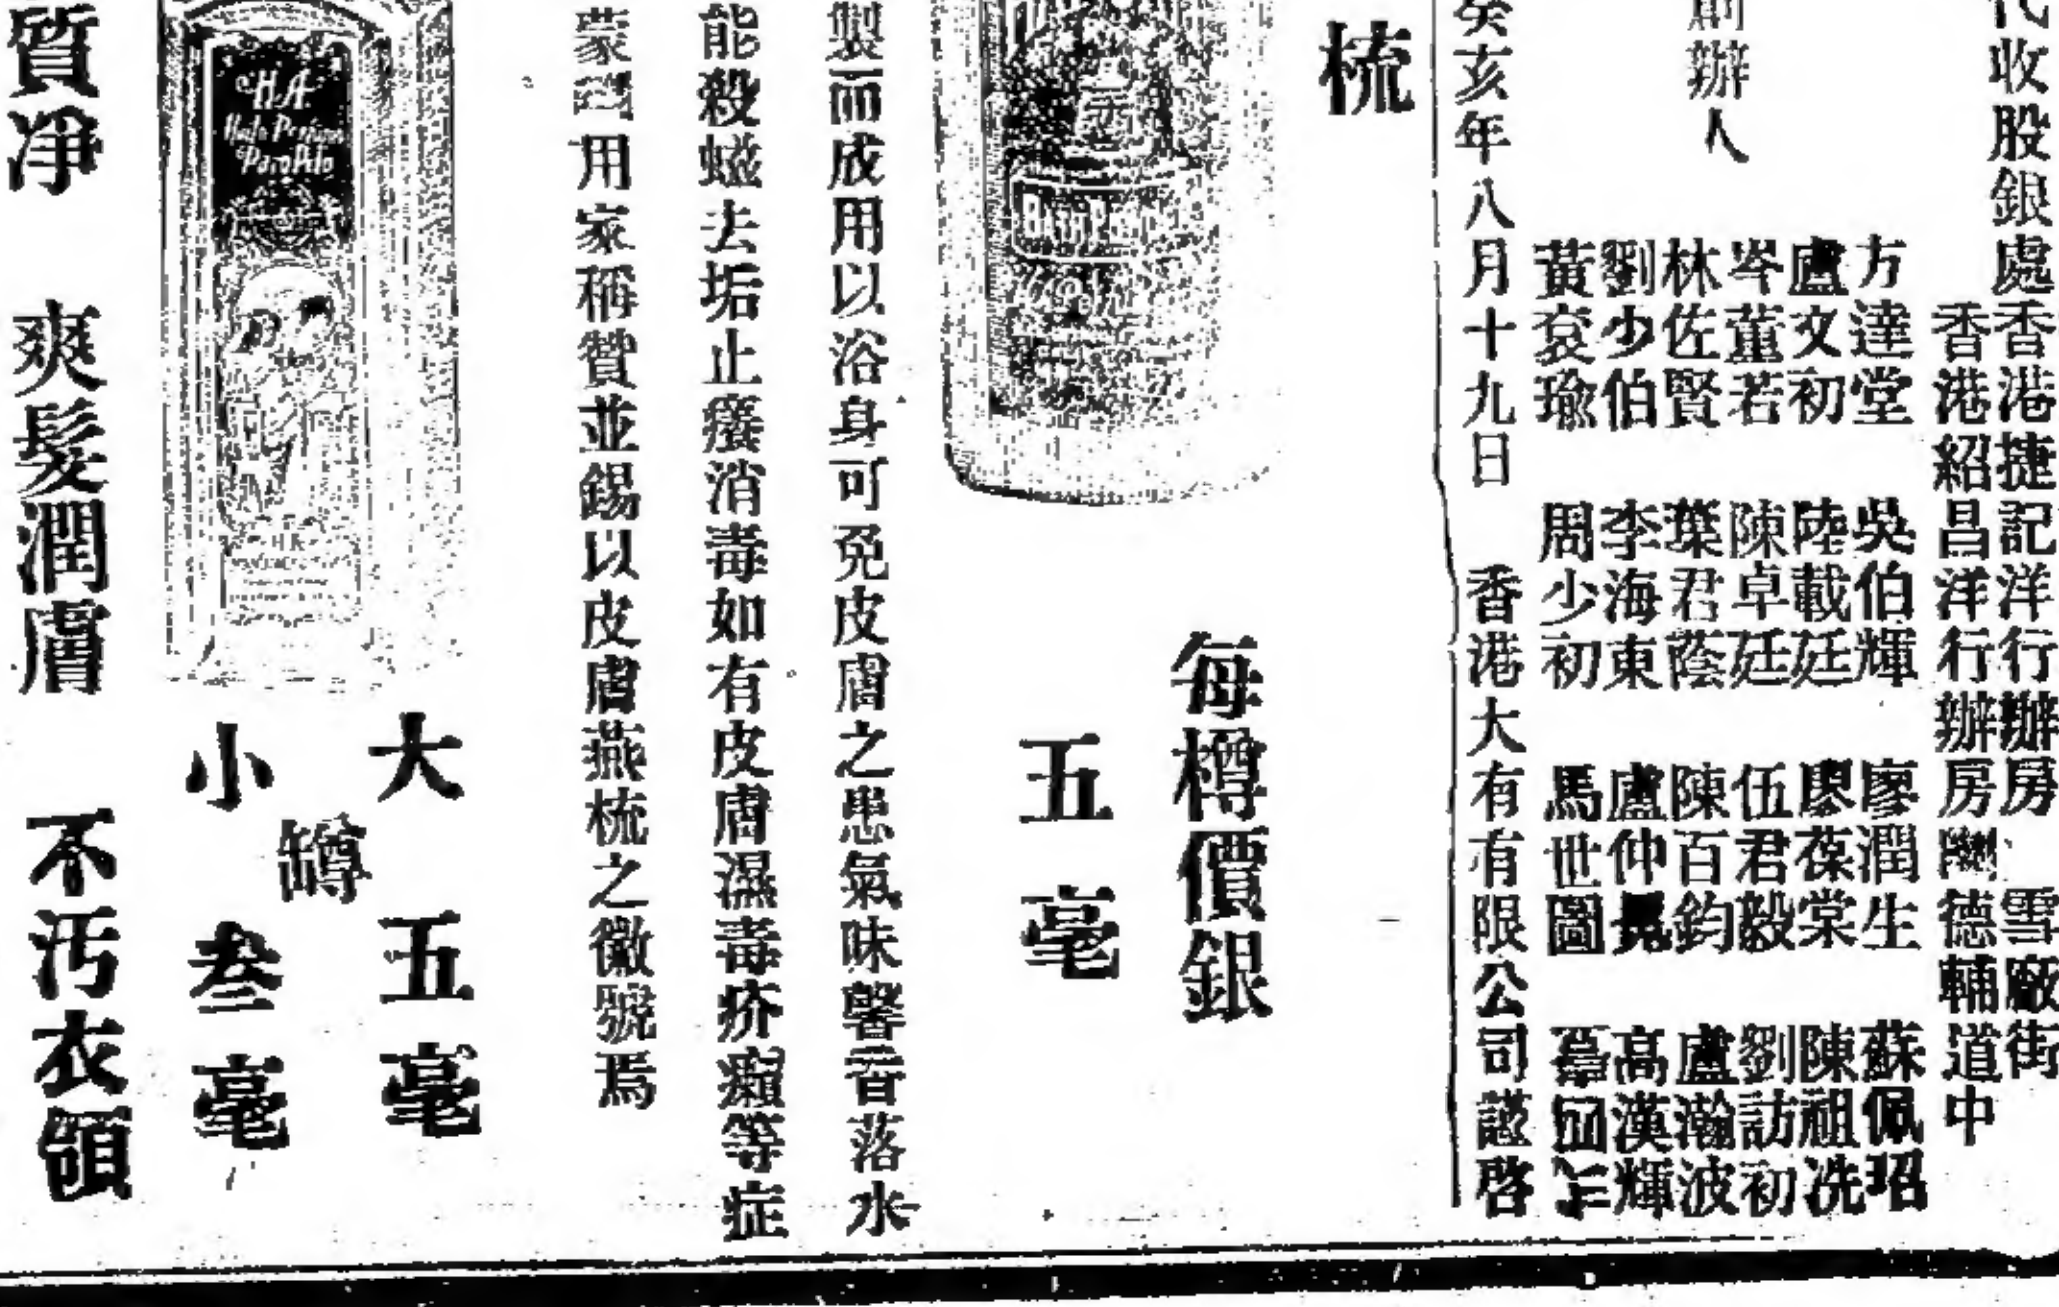 代收股銀處香港捷記洋行辦房 雪廠街
香港紹昌洋行辦房 德輔道中
創辦人
方達堂 吳伯輝 廖潤生 蘇佩玿
盧文初 陸載廷 廖葆棠 陳祖冼
岑董若 陳卓廷 伍君毅 劉訪初
林佐賢 葉君蔭 陳百鈞 盧瀚波
劉少伯 李海東 盧仲 高漢輝
黃袞瑜 周少初 馬世圖
癸亥年八月十九日 香港大有有限公司謹啓
梳
每樽價銀
五毫
製而成用以浴身可免皮膚之患氣味馨香落水
能殺蝨去垢止癢消毒如有皮膚濕毒疥癩等症
蒙 用家稱贊並錫以皮膚燕梳之徽號焉
HA
大 五毫
罇
小 叁毫
質净 爽髮潤膚 不污衣領